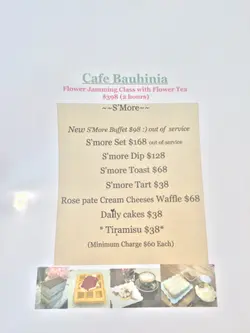 Cafe Bauhinia
Flower Jamming Class with Flower Tea
$398 (2 hours)
~~S'More~~
New S'More Buffet $98 :) out of service
S'more Set $168 out of service
S'more Dip $128
S'more Toast $68
S'more Tart $38
Rose pate Cream Cheeses Waffle $68
Daily cakes $38
* Tiramisu $38*
(Minimum Charge $60 Each)